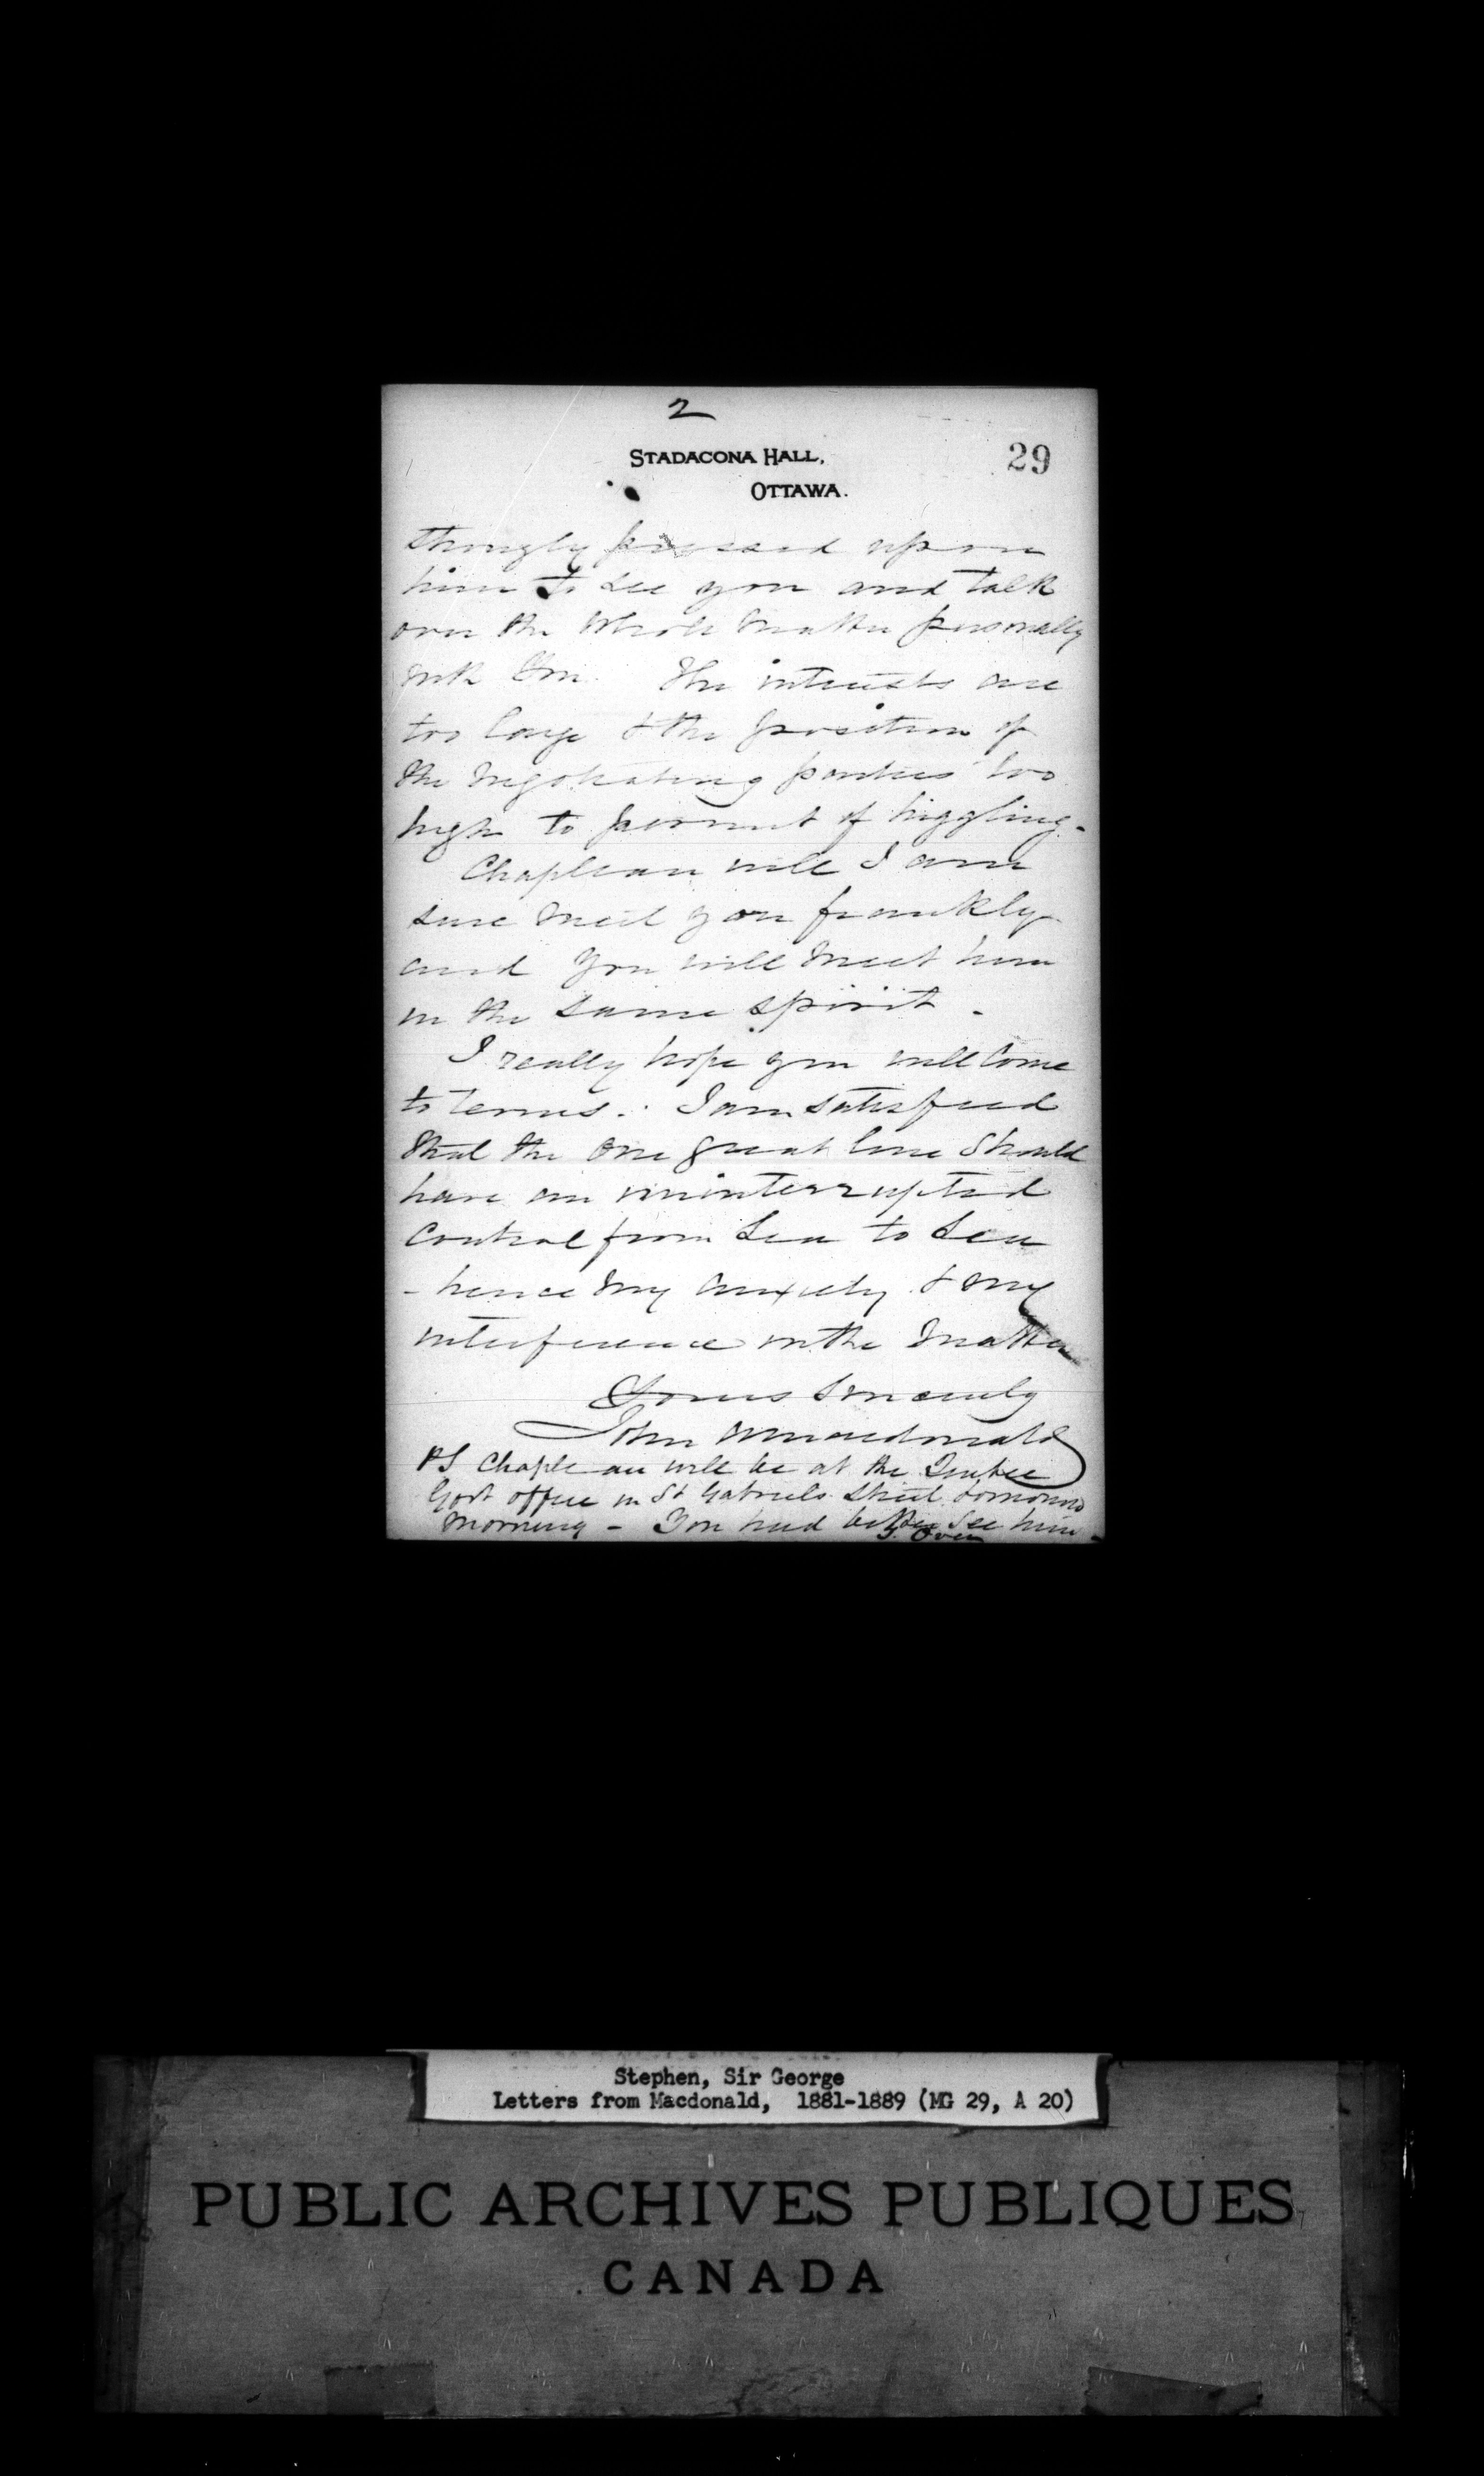 2
STADACONA HALL,
29
OTTAWA.
strongly pressed upon
him to see you and talk
over the whole matter personally
with You. The interests are
too large & the position of
the negotiating parties too
high to permit of higgling -
Chapleau will I am
sure meet you frankly
and you will meet him
in the same spirit -
I really hope you will come
to terms. I am satisfied
that the one great line should
have an uninterrupted
Control from Sea to Sea
- hence my anxiety & my
interference in the matter
Yours Sincerely
John A Macdonald
PS Chapleau will be at the Quebec
Govt office in St Gabriels Street tomorrow
morning - You had better see him -
Over
Stephen, Sir George
Letters from Macdonald, 1881-1889 (MG 29, A 20)
PUBLIC ARCHIVES PUBLIQUES
CANADA